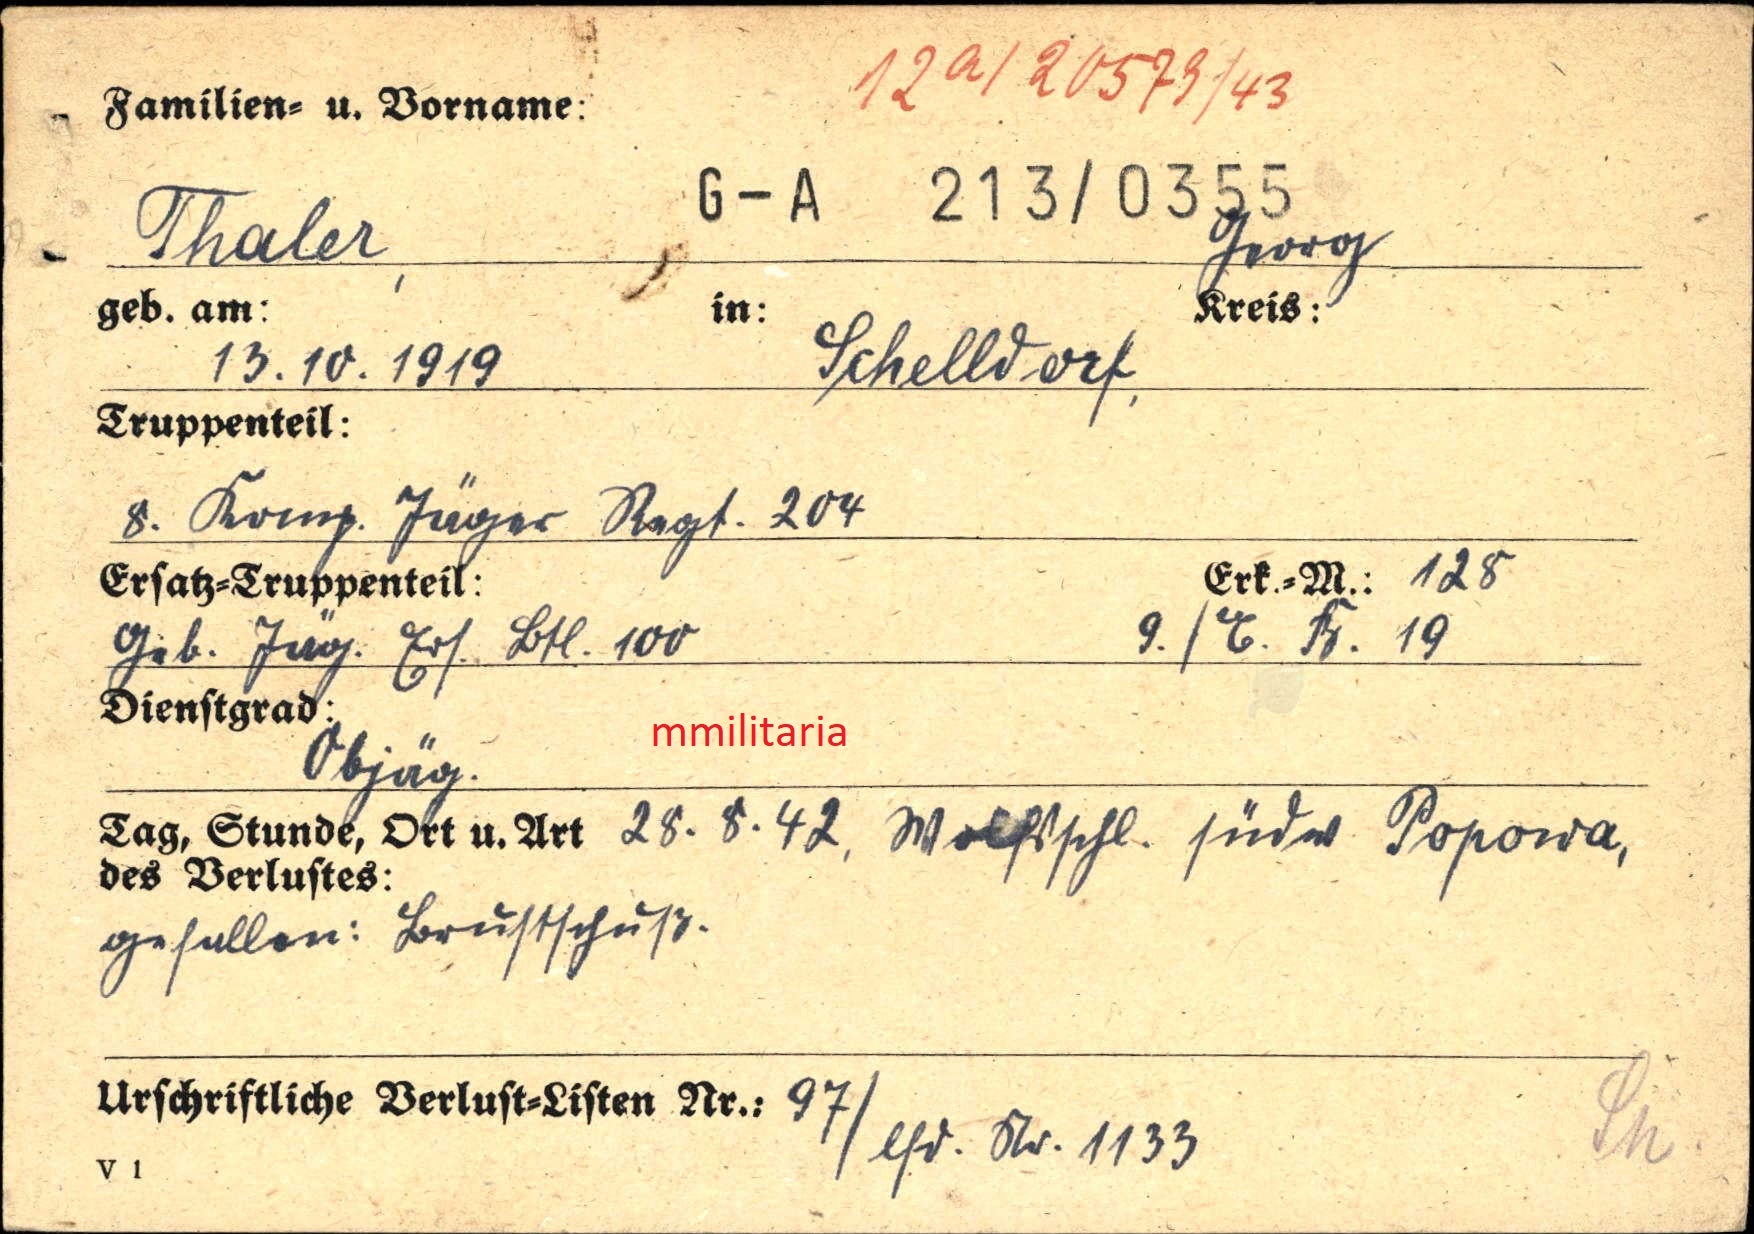 12a/20579/43
Familien- u. Vorname:
G-A 213/0355
Thaler, Georg
geb. am: in: Kreis:
13.10.1919 Schelldorf,
Truppenteil:
8. Komp. Jäger Regt. 204
Ersatz-Truppenteil: Erk.-M.: 128
Geb. Jäg. Ers. Btl. 100 9./E. K. 19
Dienstgrad:
mmilitaria
Objäg.
Tag, Stunde, Ort u. Art 28.8.42, Wolfsschl. südw Popowa,
des Verlustes:
gefallen: Brustschuß.
Urschriftliche Verlust-Listen Nr.: 97/
lfd. Nr. 1133
V 1